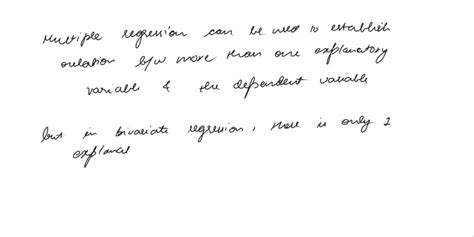 Multiple regression can be used to establish
relation b/w more than one explanatory
variable & the dependent variable
but in bivariate regression, there is only 1
explanat